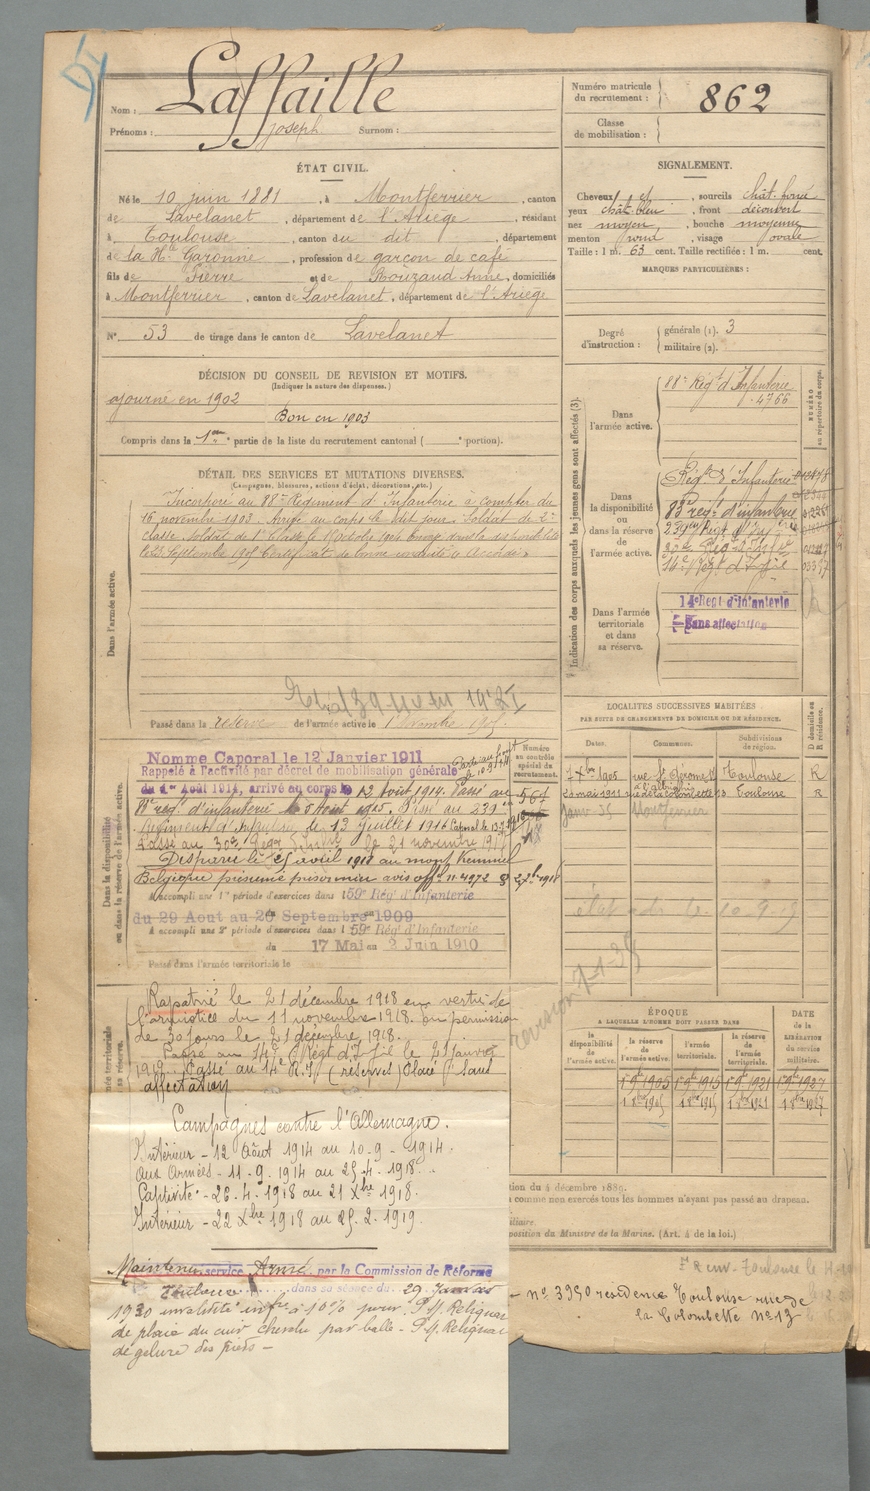 Nom : Laffaille
Prénoms : Joseph Surnom :
Numéro matricule du recrutement : 862
Classe de mobilisation :
ÉTAT CIVIL.
Né le 10 juin 1881, à Montferrier, canton
de Lavelanet, département de l'Ariège, résidant
à Toulouse, canton du dit, département
de la Hte Garonne, profession de garçon de café
fils de Pierre et de Rouzaud Anne, domiciliés
à Montferrier, canton de Lavelanet, département de l'Ariège
N° 53 de tirage dans le canton de Lavelanet
SIGNALEMENT.
Cheveux et, sourcils chât. foncé
yeux chât. bleu, front découvert
nez moyen, bouche moyenne
menton rond, visage ovale
Taille : 1 m. 63 cent. Taille rectifiée : 1 m. cent.
MARQUES PARTICULIÈRES :
Degré d'instruction : générale (1). 3
militaire (2).
DÉCISION DU CONSEIL DE REVISION ET MOTIFS.
(Indiquer la nature des dispenses.)
ajourné en 1902
Bon en 1903
Compris dans la 1ère partie de la liste du recrutement cantonal ( portion).
DÉTAIL DES SERVICES ET MUTATIONS DIVERSES.
(Campagnes, blessures, actions d'éclat, décorations, etc.)
Dans l'armée active.
Incorporé au 88e Régiment d'Infanterie à compter du
16 novembre 1903. Arrivé au corps le dit jour. Soldat de 2e
classe. Soldat de 1e classe le 1904. Envoyé dans la disponibilité
le 23 Septembre 1905 Certificat de bonne conduite a accordé.
Passé dans la réserve de l'armée active le 1905.
Indication des corps auxquels les jeunes gens sont affectés (3).
NUMÉRO au répertoire du corps.
Dans l'armée active.
88e Régt d'Infanterie
4766
Dans la disponibilité ou dans la réserve de l'armée active.
Régt d'Infanterie
83e régt d'infanterie
Dans l'armée territoriale et dans sa réserve.
14e Régt d'Infanterie
Sans affectation
Dans la disponibilité ou dans la réserve de l'armée active.
Numéro au contrôle spécial du recrutement.
Nommé Caporal le 12 Janvier 1911
Rappelé à l'activité par décret de mobilisation générale
du 1er Août 1914, arrivé au corps le 12 Août 1914. Passé au
régt d'infanterie le 5 Août 1915. Passé au 239e
Régiment d'Infanterie le 13 Juillet 1916
Passé au 30e Régt le 21 novembre
Disparu le 25 avril 1918 au mont Kemmel
Belgique présumé prisonnier avis offel n° 4972
A accompli une 1re période d'exercices dans l 59e Rég' d'Infanterie
du 29 Aout au 20 Septembre 1909
A accompli une 2e période d'exercices dans l 59e Rég' d'Infanterie
du 17 Mai au 2 Juin 1910
Passé dans l'armée territoriale le
LOCALITÉS SUCCESSIVES HABITÉES
PAR SUITE DE CHANGEMENTS DE DOMICILE OU DE RÉSIDENCE.
Dates. Communes. Subdivisions de région. D domicile ou R résidence.
7 Xbre 1905 rue St Jérôme Toulouse R
20 mai 1911 rue de la Colombette 13 Toulouse R
Janv. 35 Montferrier
revision 7-1-35
ÉPOQUE
A LAQUELLE L'HOMME DOIT PASSER DANS
la disponibilité de l'armée active. la réserve de l'armée active. l'armée territoriale. la réserve de l'armée territoriale. DATE de la LIBÉRATION du service militaire.
1 9bre 1905 1 9bre 1915 1 9bre 1921 1 9bre 1927
Rapatrié le 21 décembre 1918 en vertu de
l'armistice du 11 novembre 1918. En permission
de 30 jours le 21 décembre 1918.
Passé au 14e Régt d'Inf le 21 Janvier
1919. Classé au 14e R.I (réserves) Placé Sans
affectation
Campagnes contre l'Allemagne.
Intérieur - 12 Août 1914 au 10 - 9 - 1914.
Aux Armées - 11. 9. 1914 au 25. 4. 1918.
Captivité - 26. 4. 1918 au 21 Xbre 1918.
Intérieur - 22 Xbre 1918 au 25. 2. 1919.
Maintenu service Armé par la Commission de Réforme
Toulouse dans sa séance du 29 Janvier
1920 invalidité infre à 10% pour : Reliquat
de plaie du cuir chevelu par balle - Reliquat
de gelure des pieds -
ion du 4 décembre 1889.
comme non exercés tous les hommes n'ayant pas passé au drapeau.
position du Ministre de la Marine. (Art. 4 de la loi.)
n° 3950 résidence Toulouse rue de
la Colombette N° 13